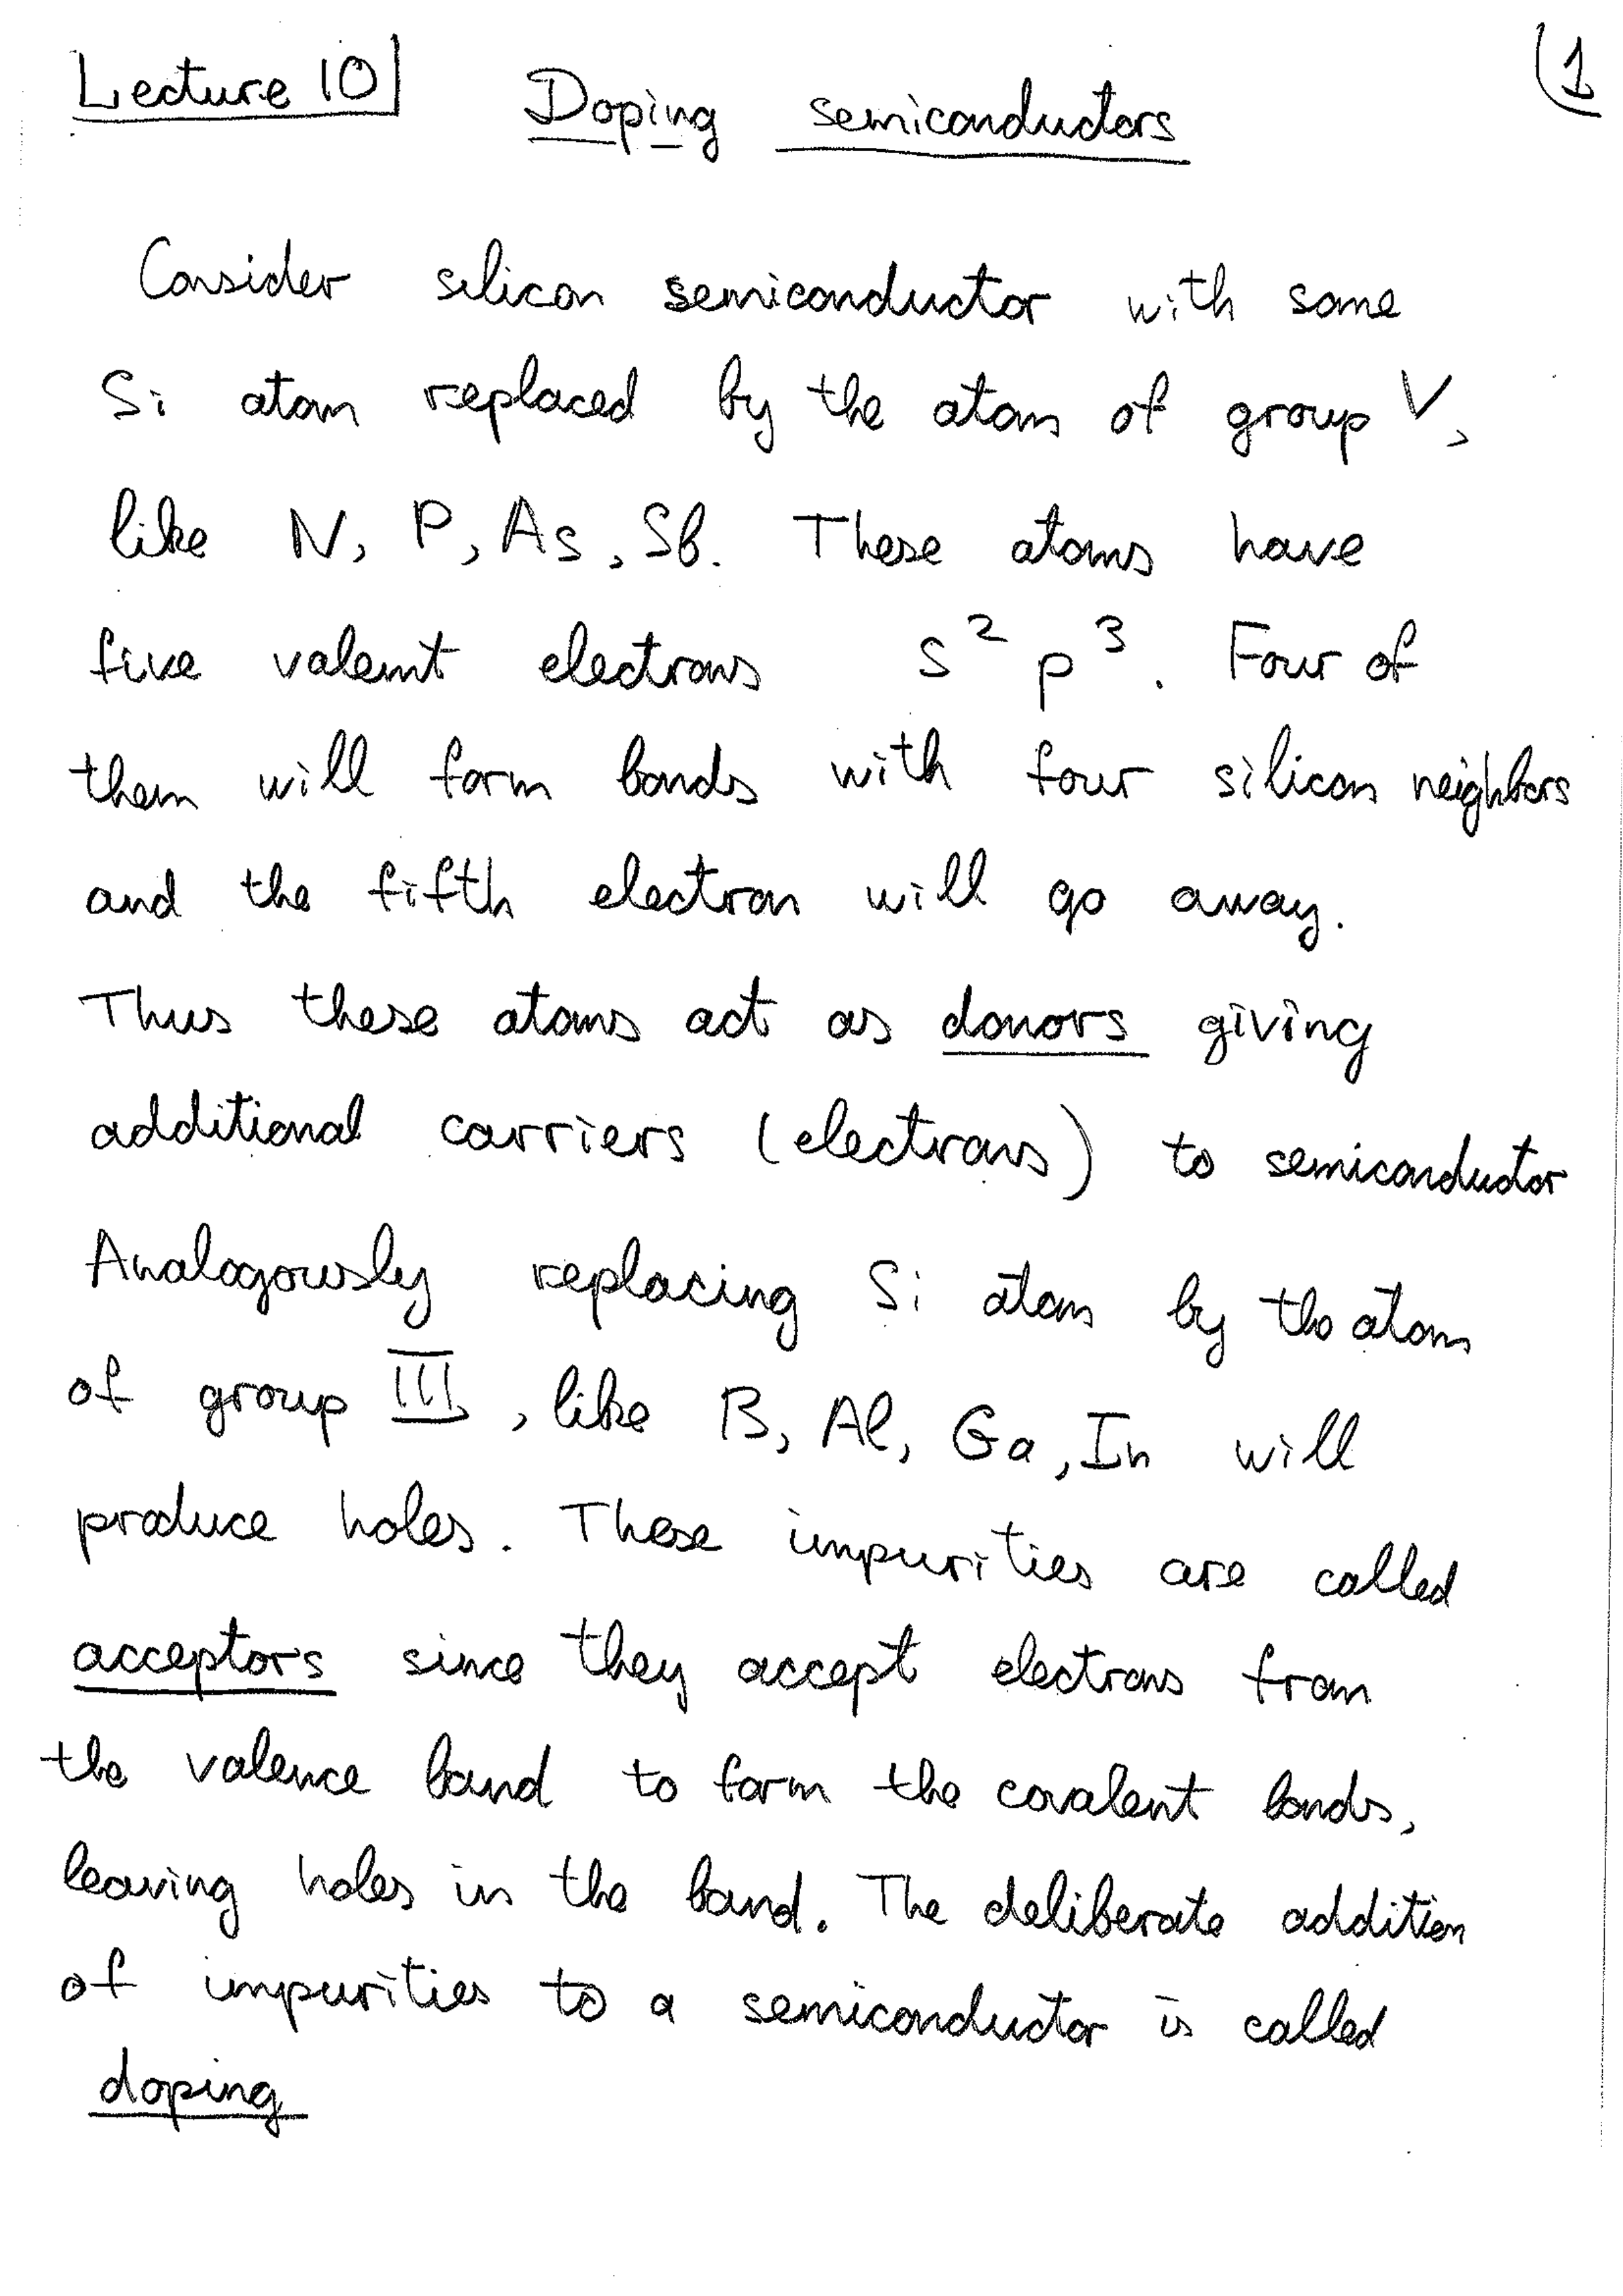 Lecture 10
Doping semiconductors
1
Consider silicon semiconductor with some
Si atom replaced by the atom of group V,
like N, P, As, Sb. These atoms have
five valent electrons s² p³. Four of
them will form bonds with four silicon neighbors
and the fifth electron will go away.
Thus these atoms act as donors giving
additional carriers (electrons) to semiconductor
Analogously replacing Si atom by the atom
of group III, like B, Al, Ga, In will
produce holes. These impurities are called
acceptors since they accept electrons from
the valence band to form the covalent bonds,
leaving holes in the band. The deliberate addition
of impurities to a semiconductor is called
doping